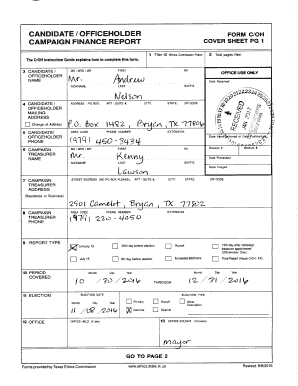 CANDIDATE / OFFICEHOLDER
CAMPAIGN FINANCE REPORT
FORM C/OH
COVER SHEET PG 1
The C/OH Instruction Guide explains how to complete this form.
1 Filer ID (Ethics Commission Filers)
2 Total pages filed:
3 CANDIDATE / OFFICEHOLDER NAME
MS / MRS / MR FIRST MI
Mr. Andrew
NICKNAME LAST SUFFIX
Nelson
OFFICE USE ONLY
Date Received
RECEIVED
4 CANDIDATE / OFFICEHOLDER MAILING ADDRESS
Change of Address
ADDRESS / PO BOX; APT / SUITE #; CITY; STATE; ZIP CODE
P.O. Box 1482, Bryan, TX 77806
5 CANDIDATE / OFFICEHOLDER PHONE
AREA CODE PHONE NUMBER EXTENSION
(979) 450-3434
Date Hand-delivered or Date Postmarked
6 CAMPAIGN TREASURER NAME
MS / MRS / MR FIRST MI
Mr. Kenny
NICKNAME LAST SUFFIX
Lawson
Receipt # Amount $
Date Processed
Date Imaged
7 CAMPAIGN TREASURER ADDRESS
(Residence or Business)
STREET ADDRESS (NO PO BOX PLEASE); APT / SUITE #; CITY; STATE; ZIP CODE
2501 Camelot, Bryan, TX 77802
8 CAMPAIGN TREASURER PHONE
AREA CODE PHONE NUMBER EXTENSION
(979) 220-4050
9 REPORT TYPE
January 15
30th day before election
Runoff
15th day after campaign treasurer appointment (Officeholder Only)
July 15
8th day before election
Exceeded $500 limit
Final Report (Attach C/OH - FR)
10 PERIOD COVERED
Month Day Year
10 / 30 / 2016
THROUGH
Month Day Year
12 / 31 / 2016
11 ELECTION
ELECTION DATE
Month Day Year
11 / 08 / 2016
ELECTION TYPE
Primary
Runoff
Other Description
General
Special
12 OFFICE
OFFICE HELD (if any)
13 OFFICE SOUGHT (if known)
mayor
GO TO PAGE 2
Forms provided by Texas Ethics Commission
www.ethics.state.tx.us